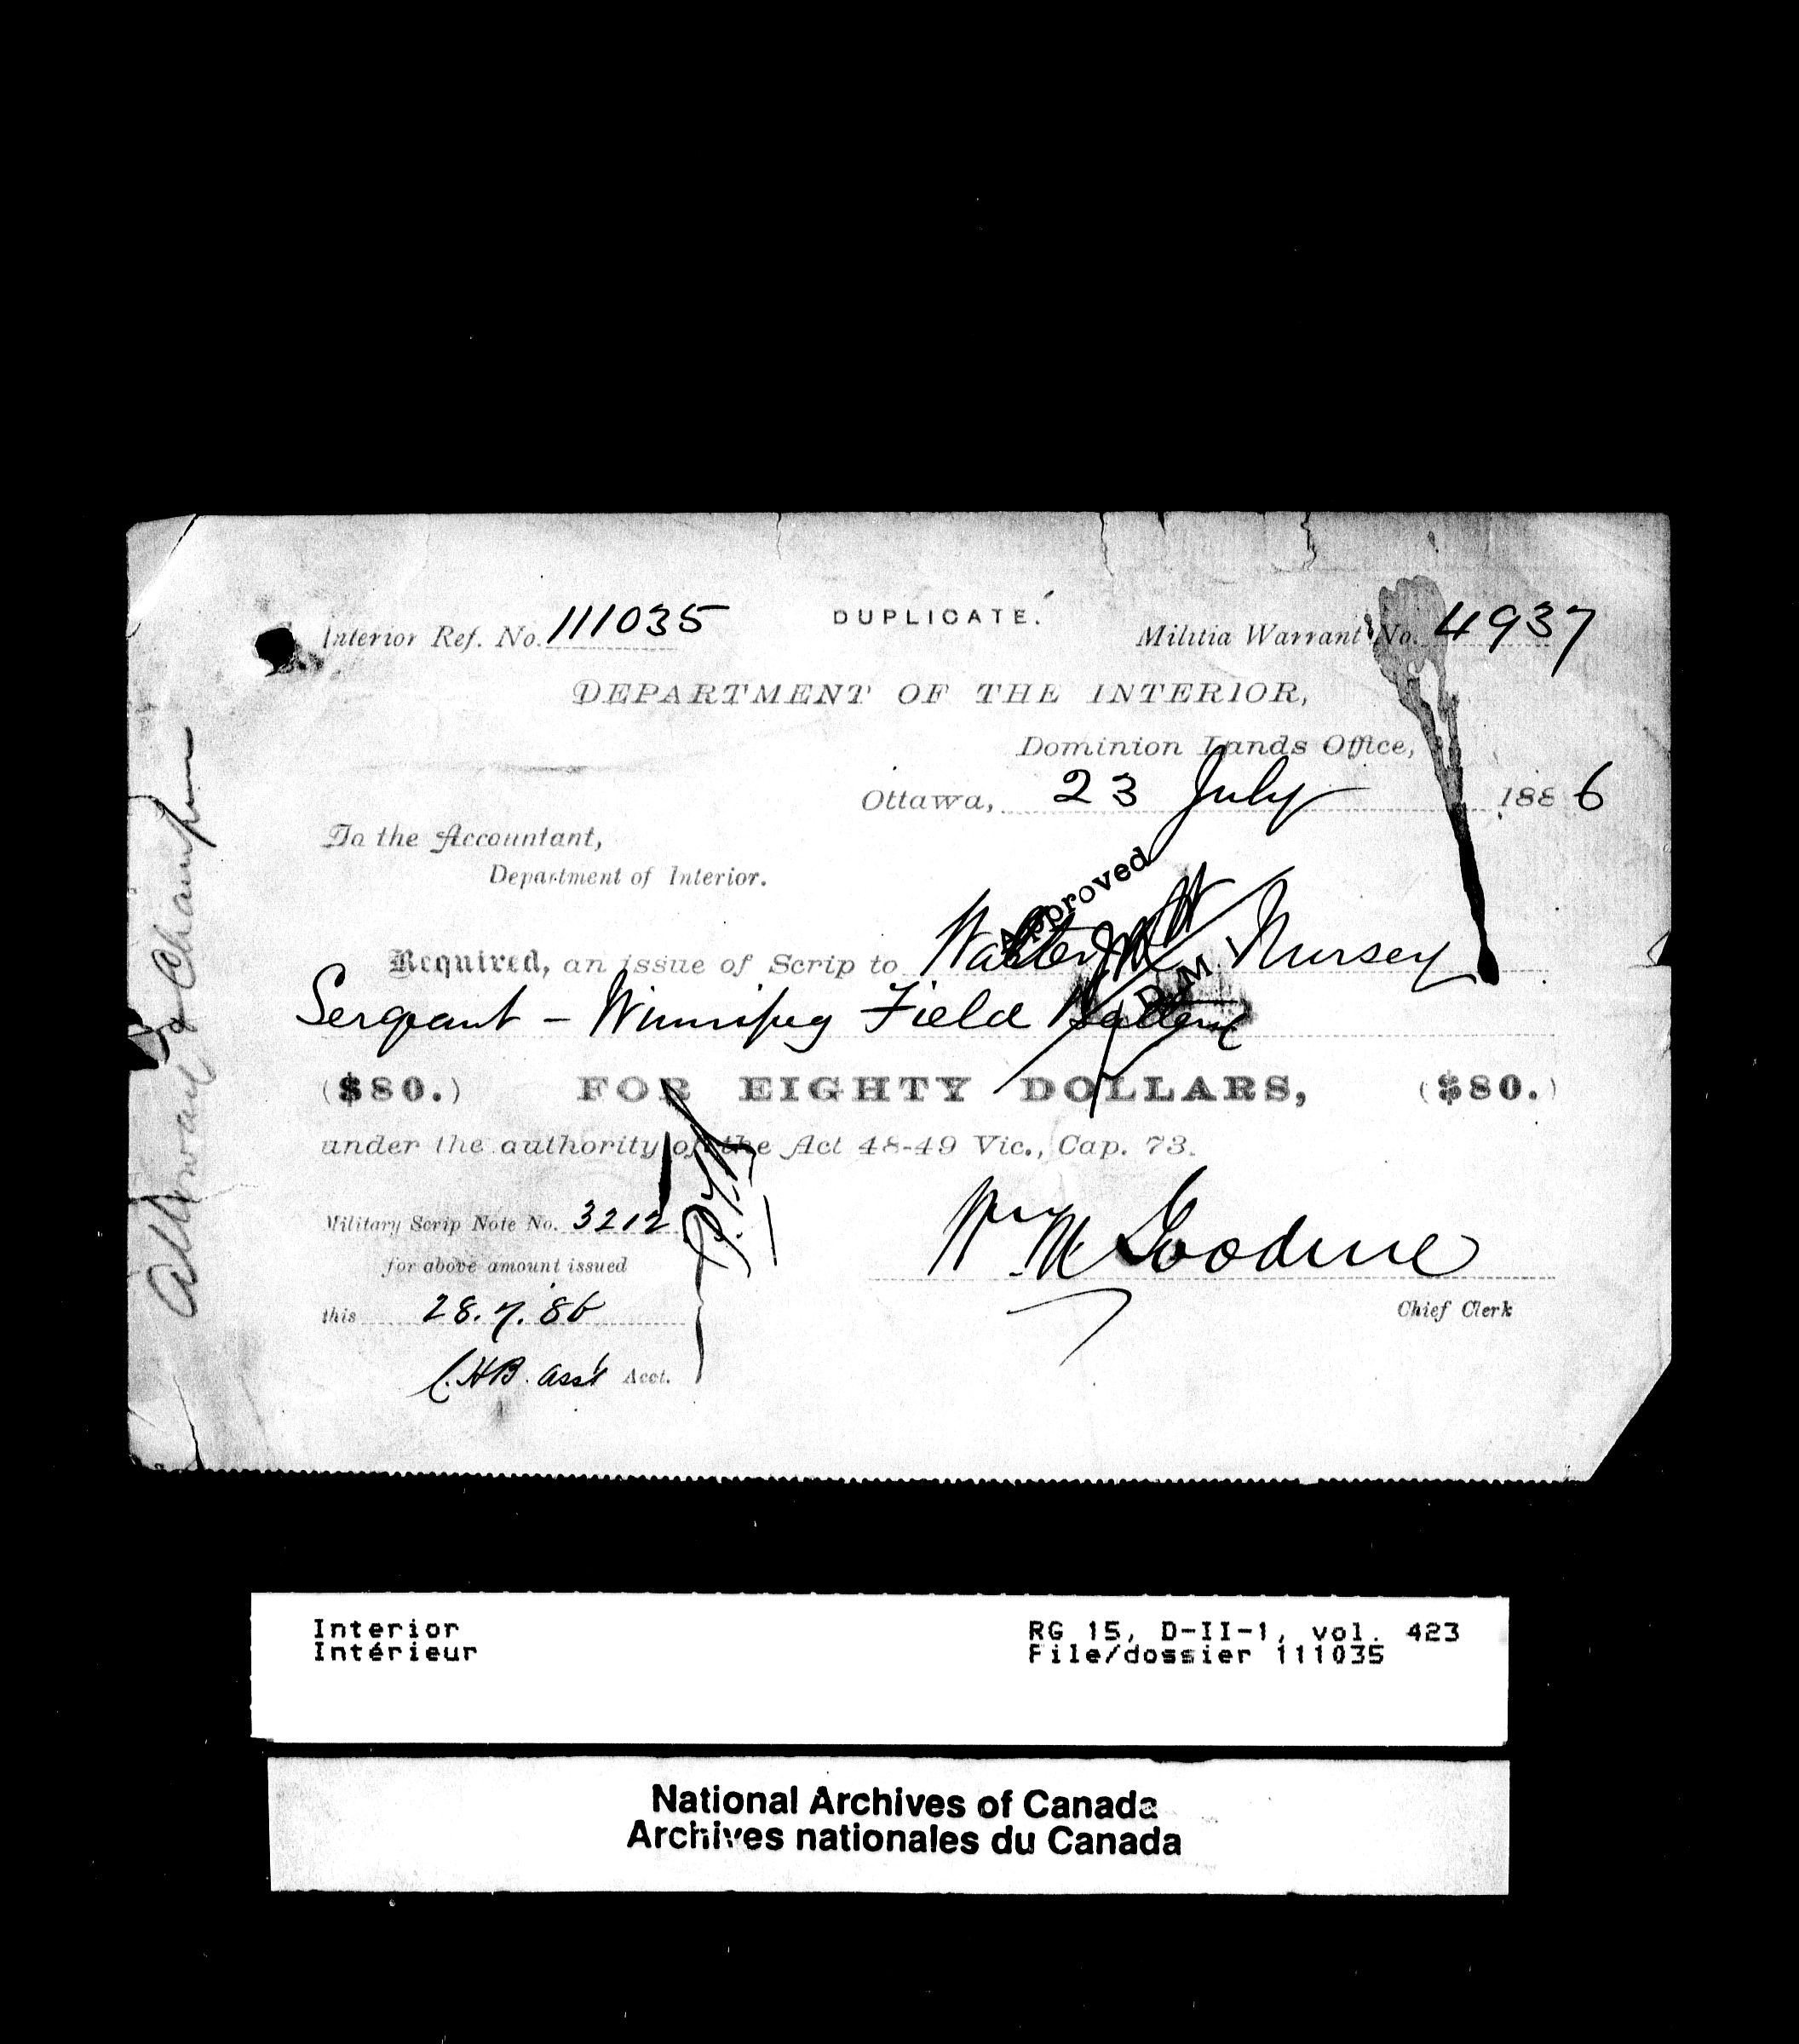 Interior Ref. No. 111035
DUPLICATE.
Militia Warrant No. 4937
DEPARTMENT OF THE INTERIOR,
Dominion Lands Office,
Ottawa, 23 July 1886
To the Accountant,
Department of Interior.
Approved
Required, an issue of Scrip to Walter Nursey
D. M.
Sergeant - Winnipeg Field Battery
($80.) FOR EIGHTY DOLLARS, ($80.)
under the authority of the Act 48-49 Vic., Cap. 73.
Military Scrip Note No. 3212
for above amount issued
this 28.7.86
C.H.B. asst Acct.
Wm M Goodeve
Chief Clerk
& Champion
Interior
Intérieur
RG 15, D-II-1, vol. 423
File/dossier 111035
National Archives of Canada
Archives nationales du Canada